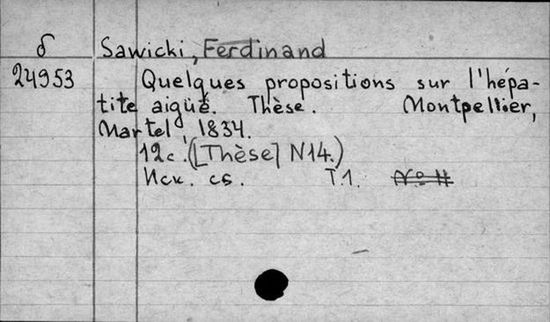 δ Sawicki, Ferdinand
24953 Quelques propositions sur l'hépa-
tite aiguë. Thèse. Montpellier,
Martel, 1834.
12с. ([Thèse] N14.)
Иск. сб. Т.1.